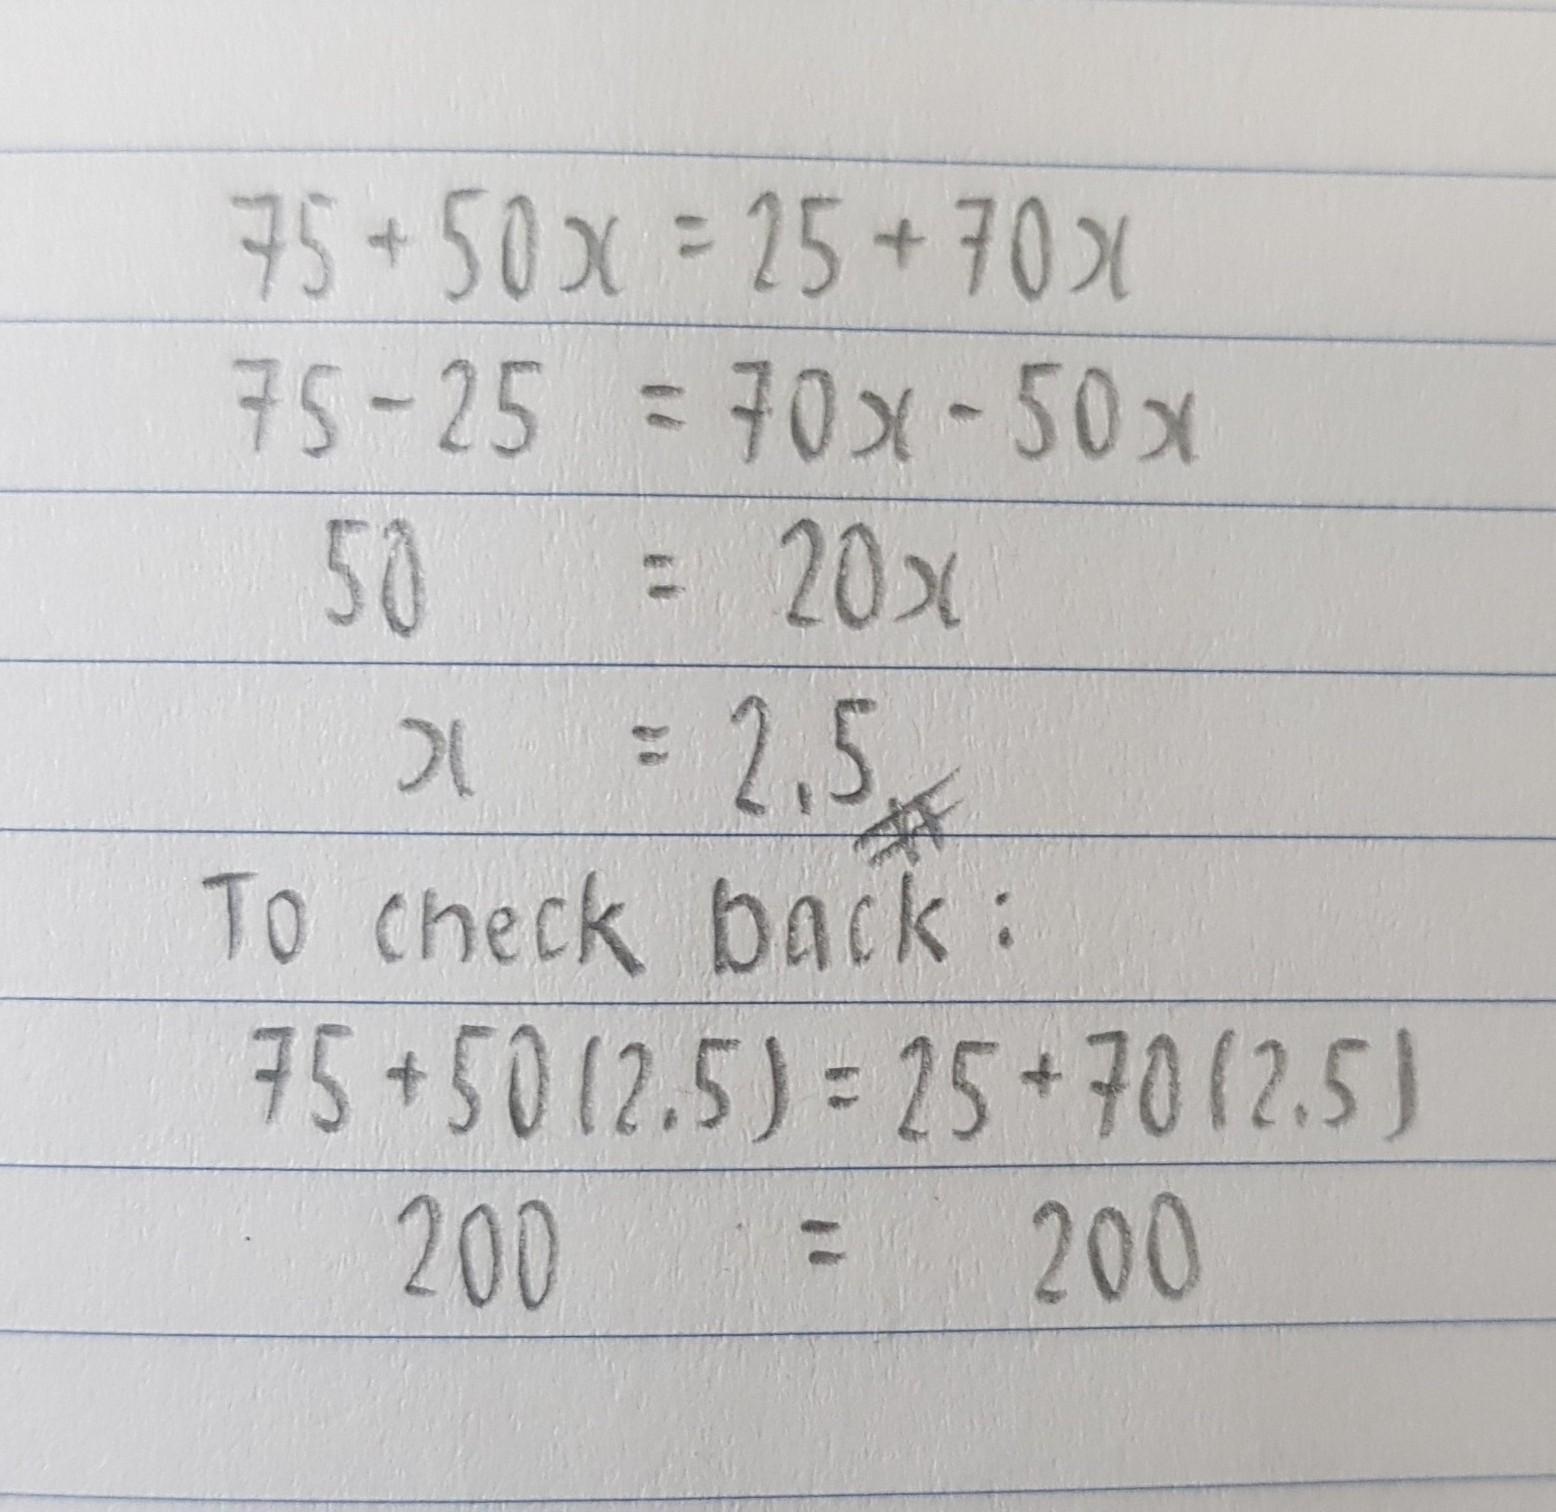 75 + 50x = 25 + 70x
75 - 25 = 70x - 50x
50 = 20x
x = 2.5
To check back :
75 + 50(2.5) = 25 + 70(2.5)
200 = 200